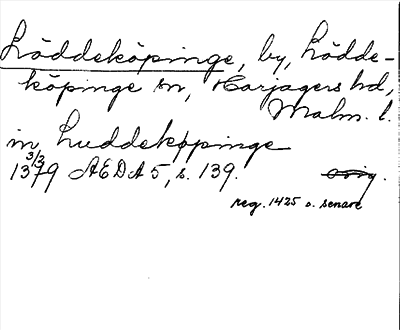 Löddeköpinge, by, Lödde-
köpinge sn, Harjagers hd,
Malm. l.
in Luddekøpinge
3/3
1379 AEDA 5, s. 139. orig.
reg. 1425 o. senare